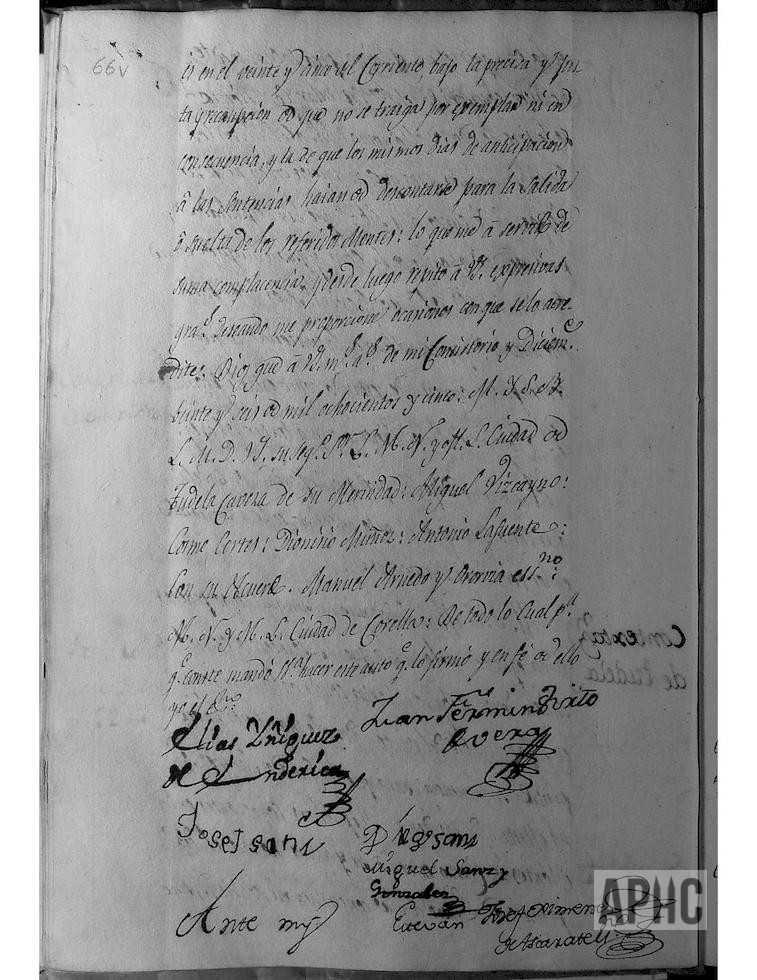 66v
es en el veinte y cinco del Corriente, bajo la precisa y jus
ta precaupcion de que no se traiga por exemplar ni en
consecuencia, y la de que los mismos dias de anticipacion
â las sentencias haian de descontarse para la salida
ô suelta de los referidos Montes: lo que me â servido de
suma complacencia, y desde luego repito â VS. expresivas
gra.s deseando me proporcione ocasiones con que se lo acre-
dite. Dios gue â VS. m.s a.s de mi Consistorio y Diciem.e
veinte y seis de mil ochocientos y cinco: M. Y. S. B.
L. M. D. VS. su seg.o S.or L. M. N. y M. L. Ciudad de
Tudela Cavera de su Merindad: Miguel Vizcayno:
Cosme Cortes: Dionisio Muñoz: Antonio Lafuente:
Con su Acuerdo. Manuel Arnedo y Ororvia ess.no:
M. N. y M. L. Ciudad de Corella: De todo lo cual p.a
q.e conste mandó S.a hacer este auto q.e lo firmó y en fé de ello
yo el Ss.no
Elias Yñiguez
de
Juan Fermin
Josef Sanz
Diego Sanz
Miguel Sanz y
Gonzalez
Ante mi
Estevan Josef Ximenez
de Ascarate
de tudela
APHC